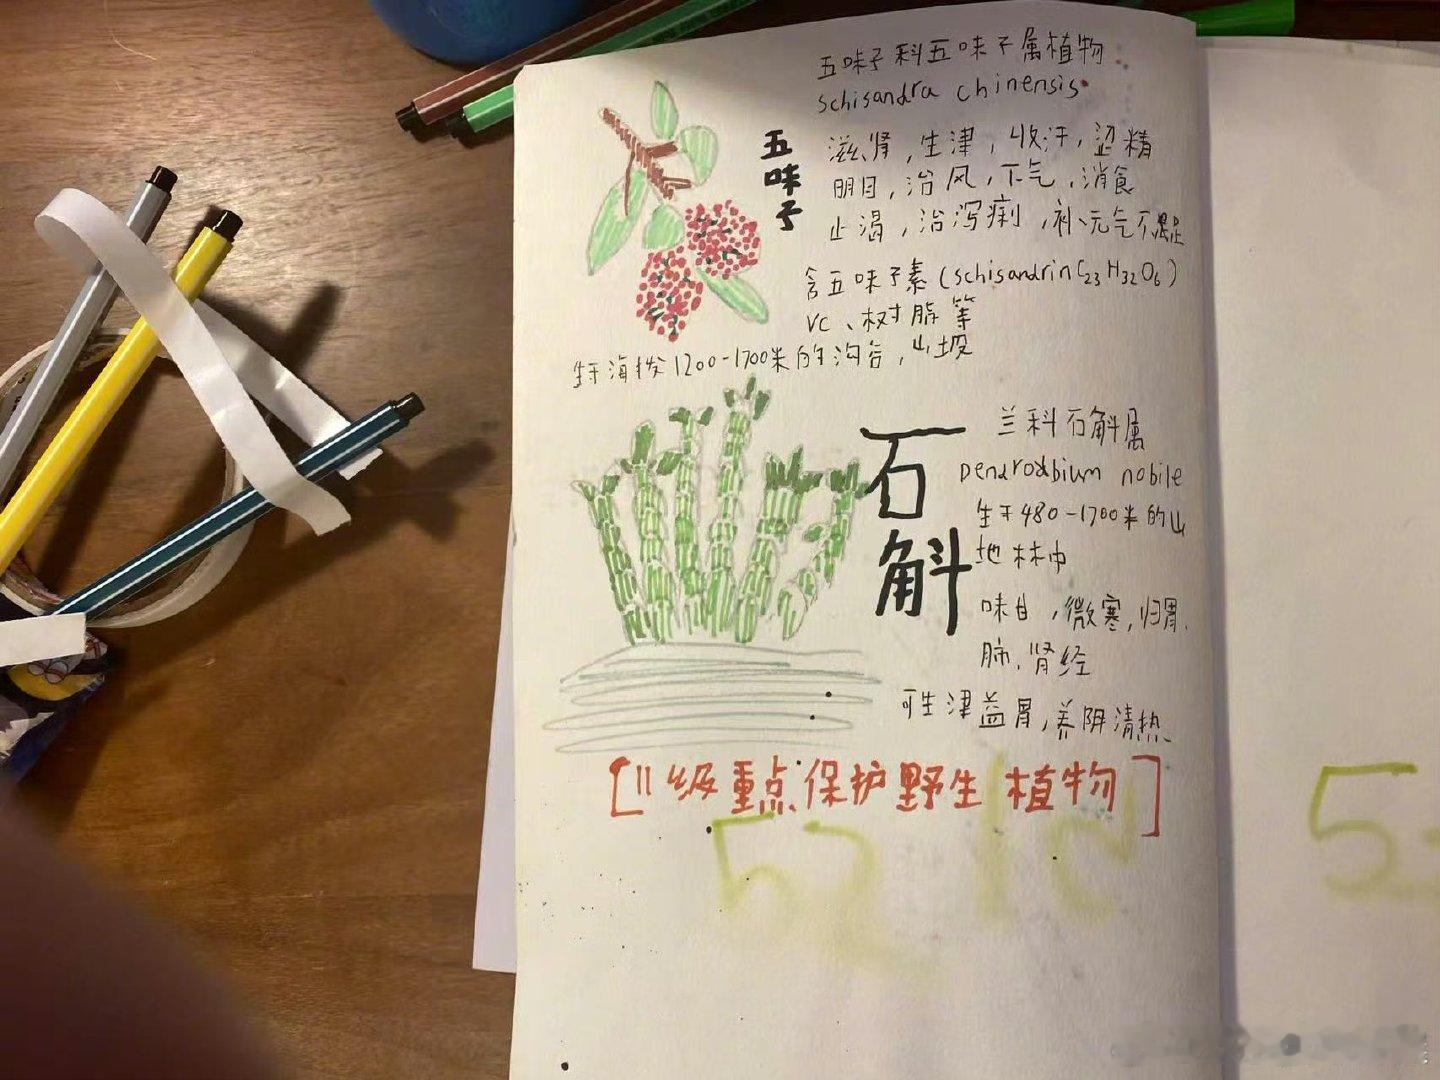 五味子科五味子属植物
schisandra chinensis
五味子
滋肾，生津，收汗，涩精
明目，治风，下气，消食
止渴，治泻痢，补元气不足
含五味子素(schisandrin C23H32O6)
VC、树脂等
生于海拔1200-1700米的沟谷，山坡
石斛
兰科石斛属
Dendrodbium nobile
生于480-1700米的山
地林中
味甘，微寒，归胃、
肺、肾经
可生津益胃，养阴清热
[II级重点保护野生植物]
52